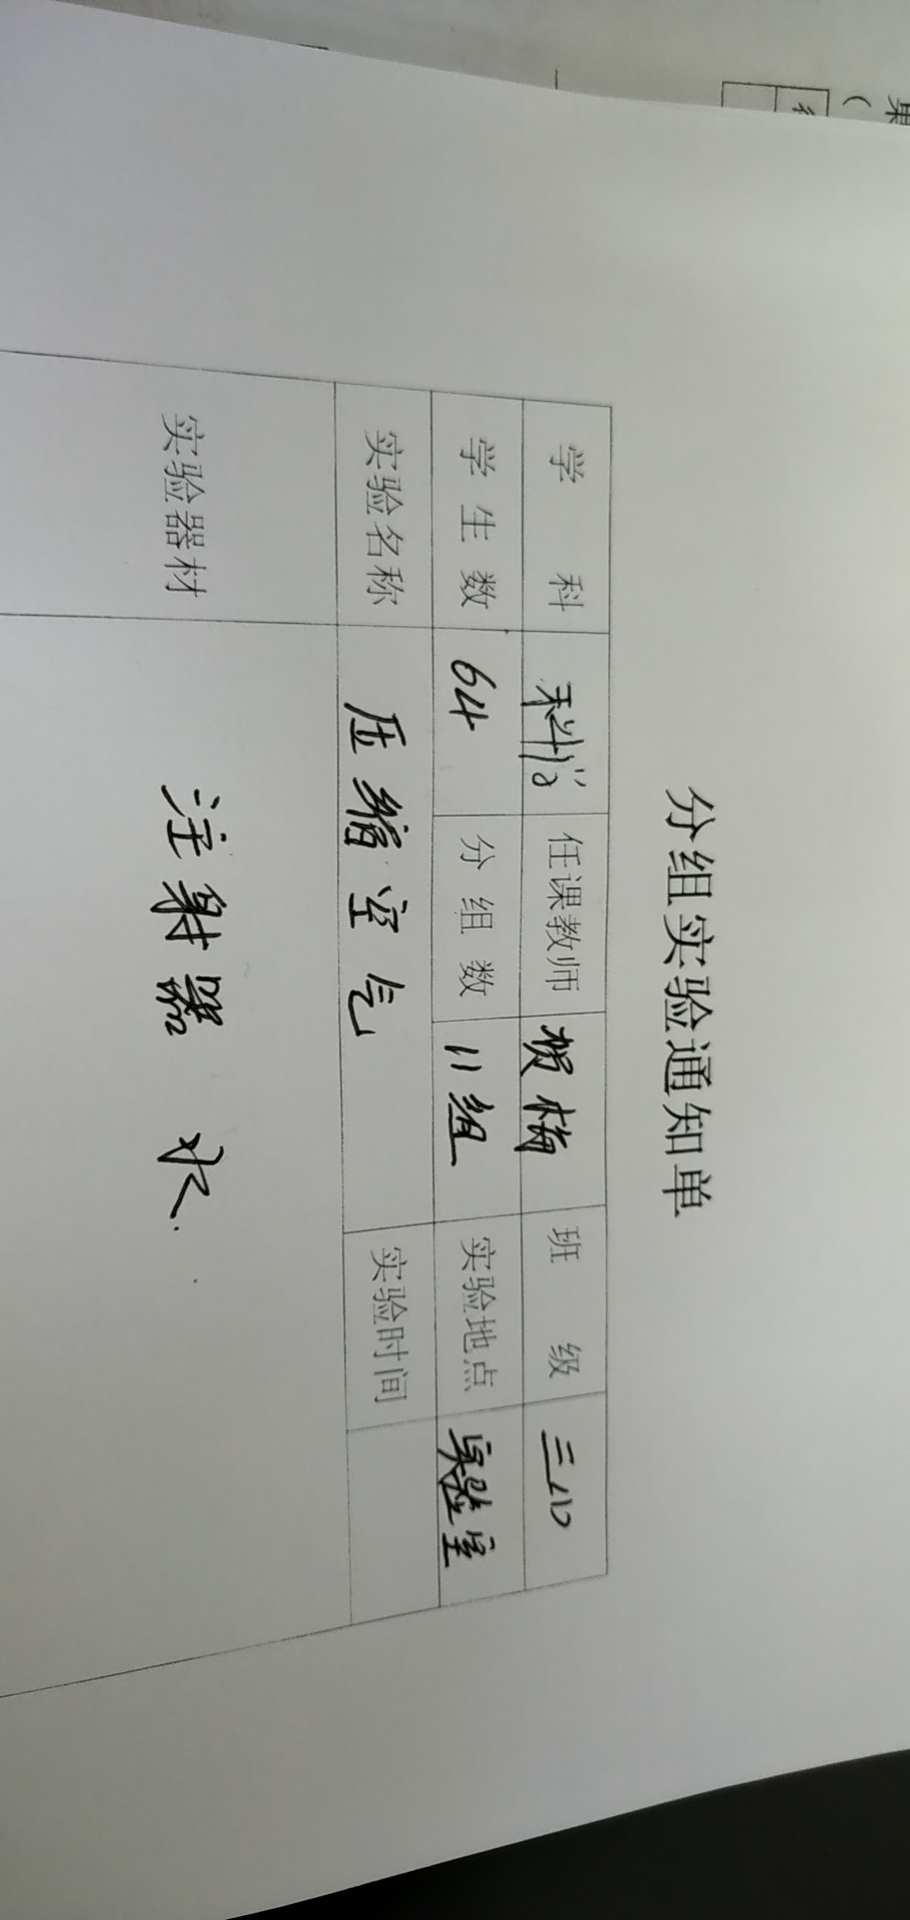 分组实验通知单
学 科 科学 任课教师 贺梅 班 级 三八
学生数 64 分组数 11组 实验地点 实验室
实验名称 压缩空气 实验时间
实验器材 注射器 水.